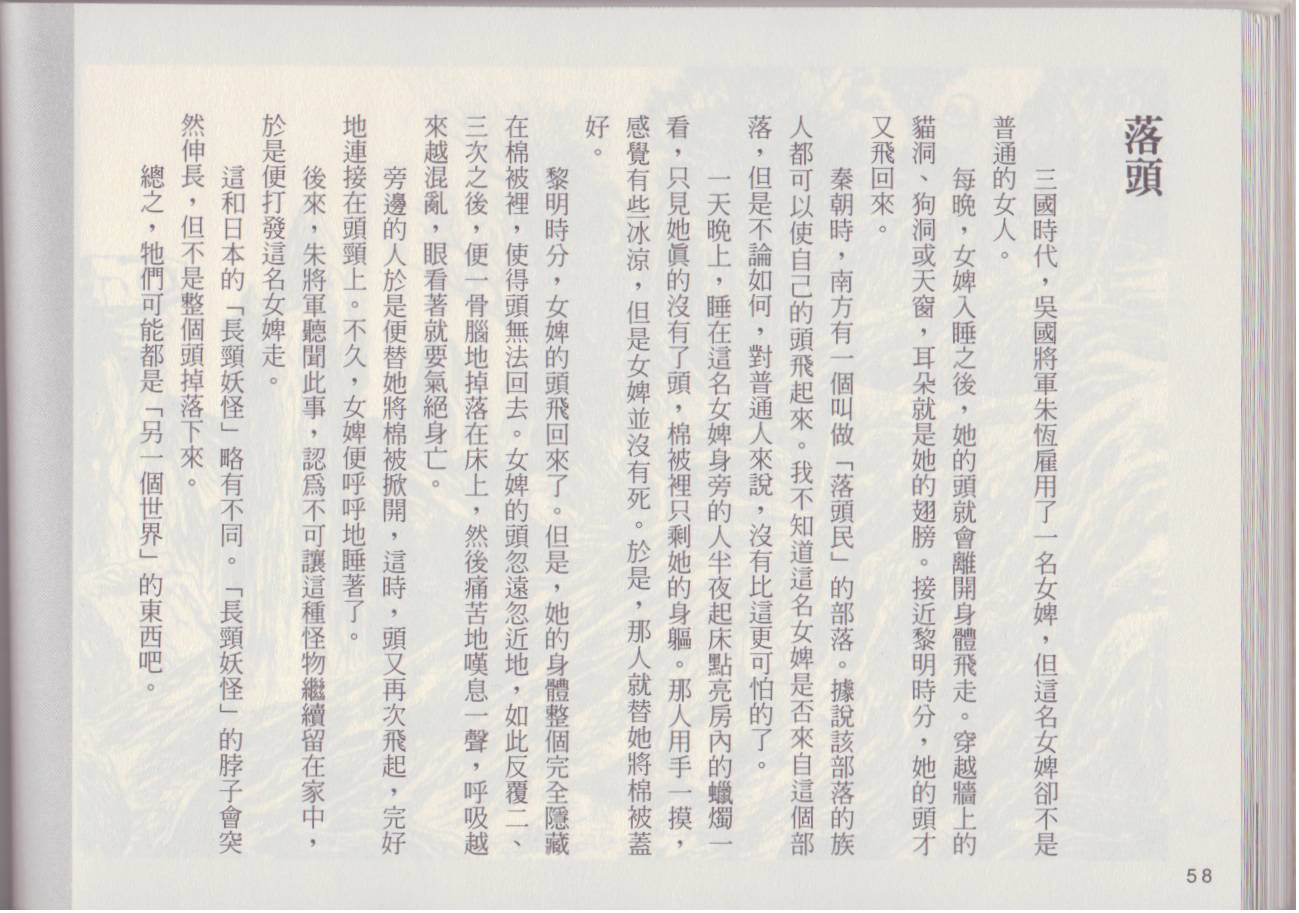 落頭
三國時代，吳國將軍朱恆雇用了一名女婢，但這名女婢卻不是
普通的女人。
每晚，女婢入睡之後，她的頭就會離開身體飛走。穿越牆上的
貓洞、狗洞或天窗，耳朵就是她的翅膀。接近黎明時分，她的頭才
又飛回來。
秦朝時，南方有一個叫做「落頭民」的部落。據說該部落的族
人都可以使自己的頭飛起來。我不知道這名女婢是否來自這個部
落，但是不論如何，對普通人來說，沒有比這更可怕的了。
一天晚上，睡在這名女婢身旁的人半夜起床點亮房內的蠟燭一
看，只見她真的沒有了頭，棉被裡只剩她的身軀。那人用手一摸，
感覺有些冰涼，但是女婢並沒有死。於是，那人就替她將棉被蓋
好。
黎明時分，女婢的頭飛回來了。但是，她的身體整個完全隱藏
在棉被裡，使得頭無法回去。女婢的頭忽遠忽近地，如此反覆二、
三次之後，便一骨腦地掉落在床上，然後痛苦地嘆息一聲，呼吸越
來越混亂，眼看著就要氣絕身亡。
旁邊的人於是便替她將棉被掀開，這時，頭又再次飛起，完好
地連接在頭頸上。不久，女婢便呼呼地睡著了。
後來，朱將軍聽聞此事，認爲不可讓這種怪物繼續留在家中，
於是便打發這名女婢走。
這和日本的「長頸妖怪」略有不同。「長頸妖怪」的脖子會突
然伸長，但不是整個頭掉落下來。
總之，牠們可能都是「另一個世界」的東西吧。
58